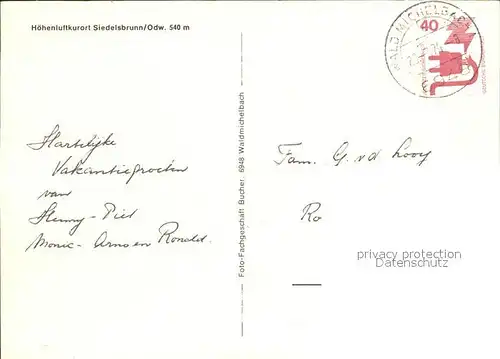 Höhenluftkurort Siedelsbrunn/Odw. 540 m
Hartelijke
Vakantiegroeten
van
Henny - Piet
Monic - Arno en Ronald.
Foto-Fachgeschäft Bucher, 6948 Waldmichelbach
WALD MICHELBACH
40
Fam. G. v d Looy
Ro
privacy protection
Datenschutz